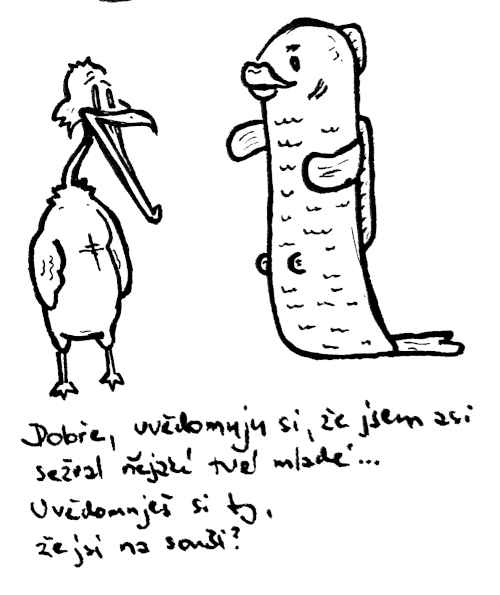 Dobře, uvědomuju si, že jsem asi
sežral nějaké tvé mladé...
Uvědomuješ si ty,
že jsi na souši?